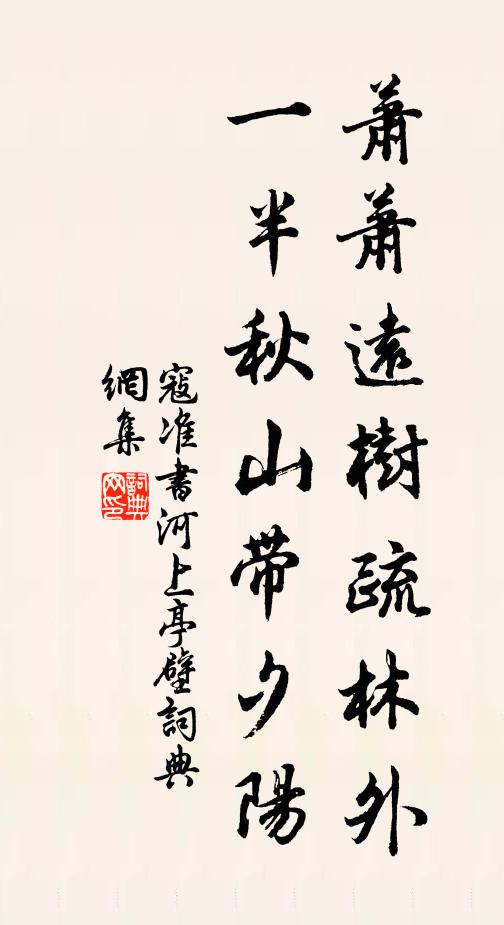 蕭蕭遠樹疏林外
一半秋山帶夕陽
寇准書河上亭壁詞典
網集
詞典
网印